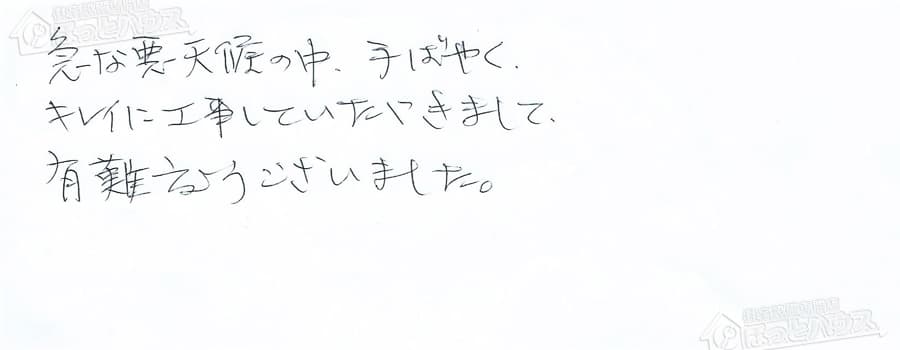 急な悪天候の中、手ばやく、
キレイに工事していただきまして、
有難うようございました。
ほっとハウス
ほっとハウス